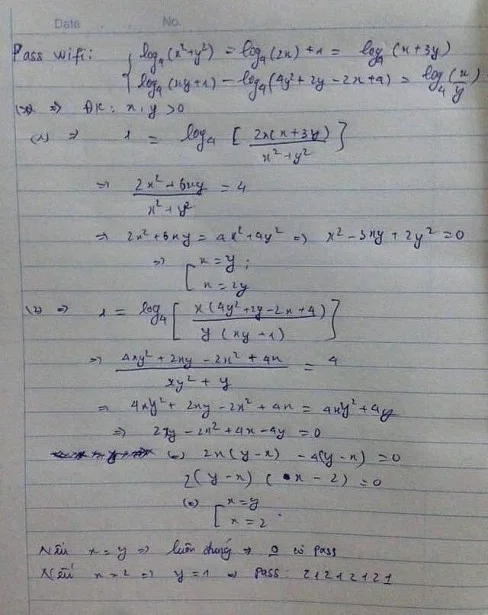 Date No.
Pass wifi: { log₄(x²+y²) = log₄(2x) + 1 = log₄(x+3y)
log₄(xy+1) - log₄(4y²+2y-2x+4) = log₄(x/y)
⇒ ĐK: x, y > 0
(1) ⇒ 1 = log₄ [ 2x(x+3y) / x²+y² ]
⇒ 2x²+6xy / x²+y² = 4
⇒ 2x²+6xy = 4x²+4y² ⇒ x²-3xy+2y² = 0
⇒ [ x = y ;
x = 2y
(2) ⇒ 1 = log₄ [ x(4y²+2y-2x+4) / y(xy+1) ]
⇒ 4xy²+2xy-2x²+4x / xy²+y = 4
⇒ 4xy²+2xy-2x²+4x = 4xy²+4y
⇒ 2xy-2x²+4x-4y = 0
(⇔) 2x(y-x) - 4(y-x) = 0
2(y-x)(x-2) = 0
(⇔) [ x = y
x = 2 .
Nếu x = y ⇒ luôn đúng ⇒ 0 có pass
Nếu x = 2 ⇒ y = 1 ⇒ pass: 21212121